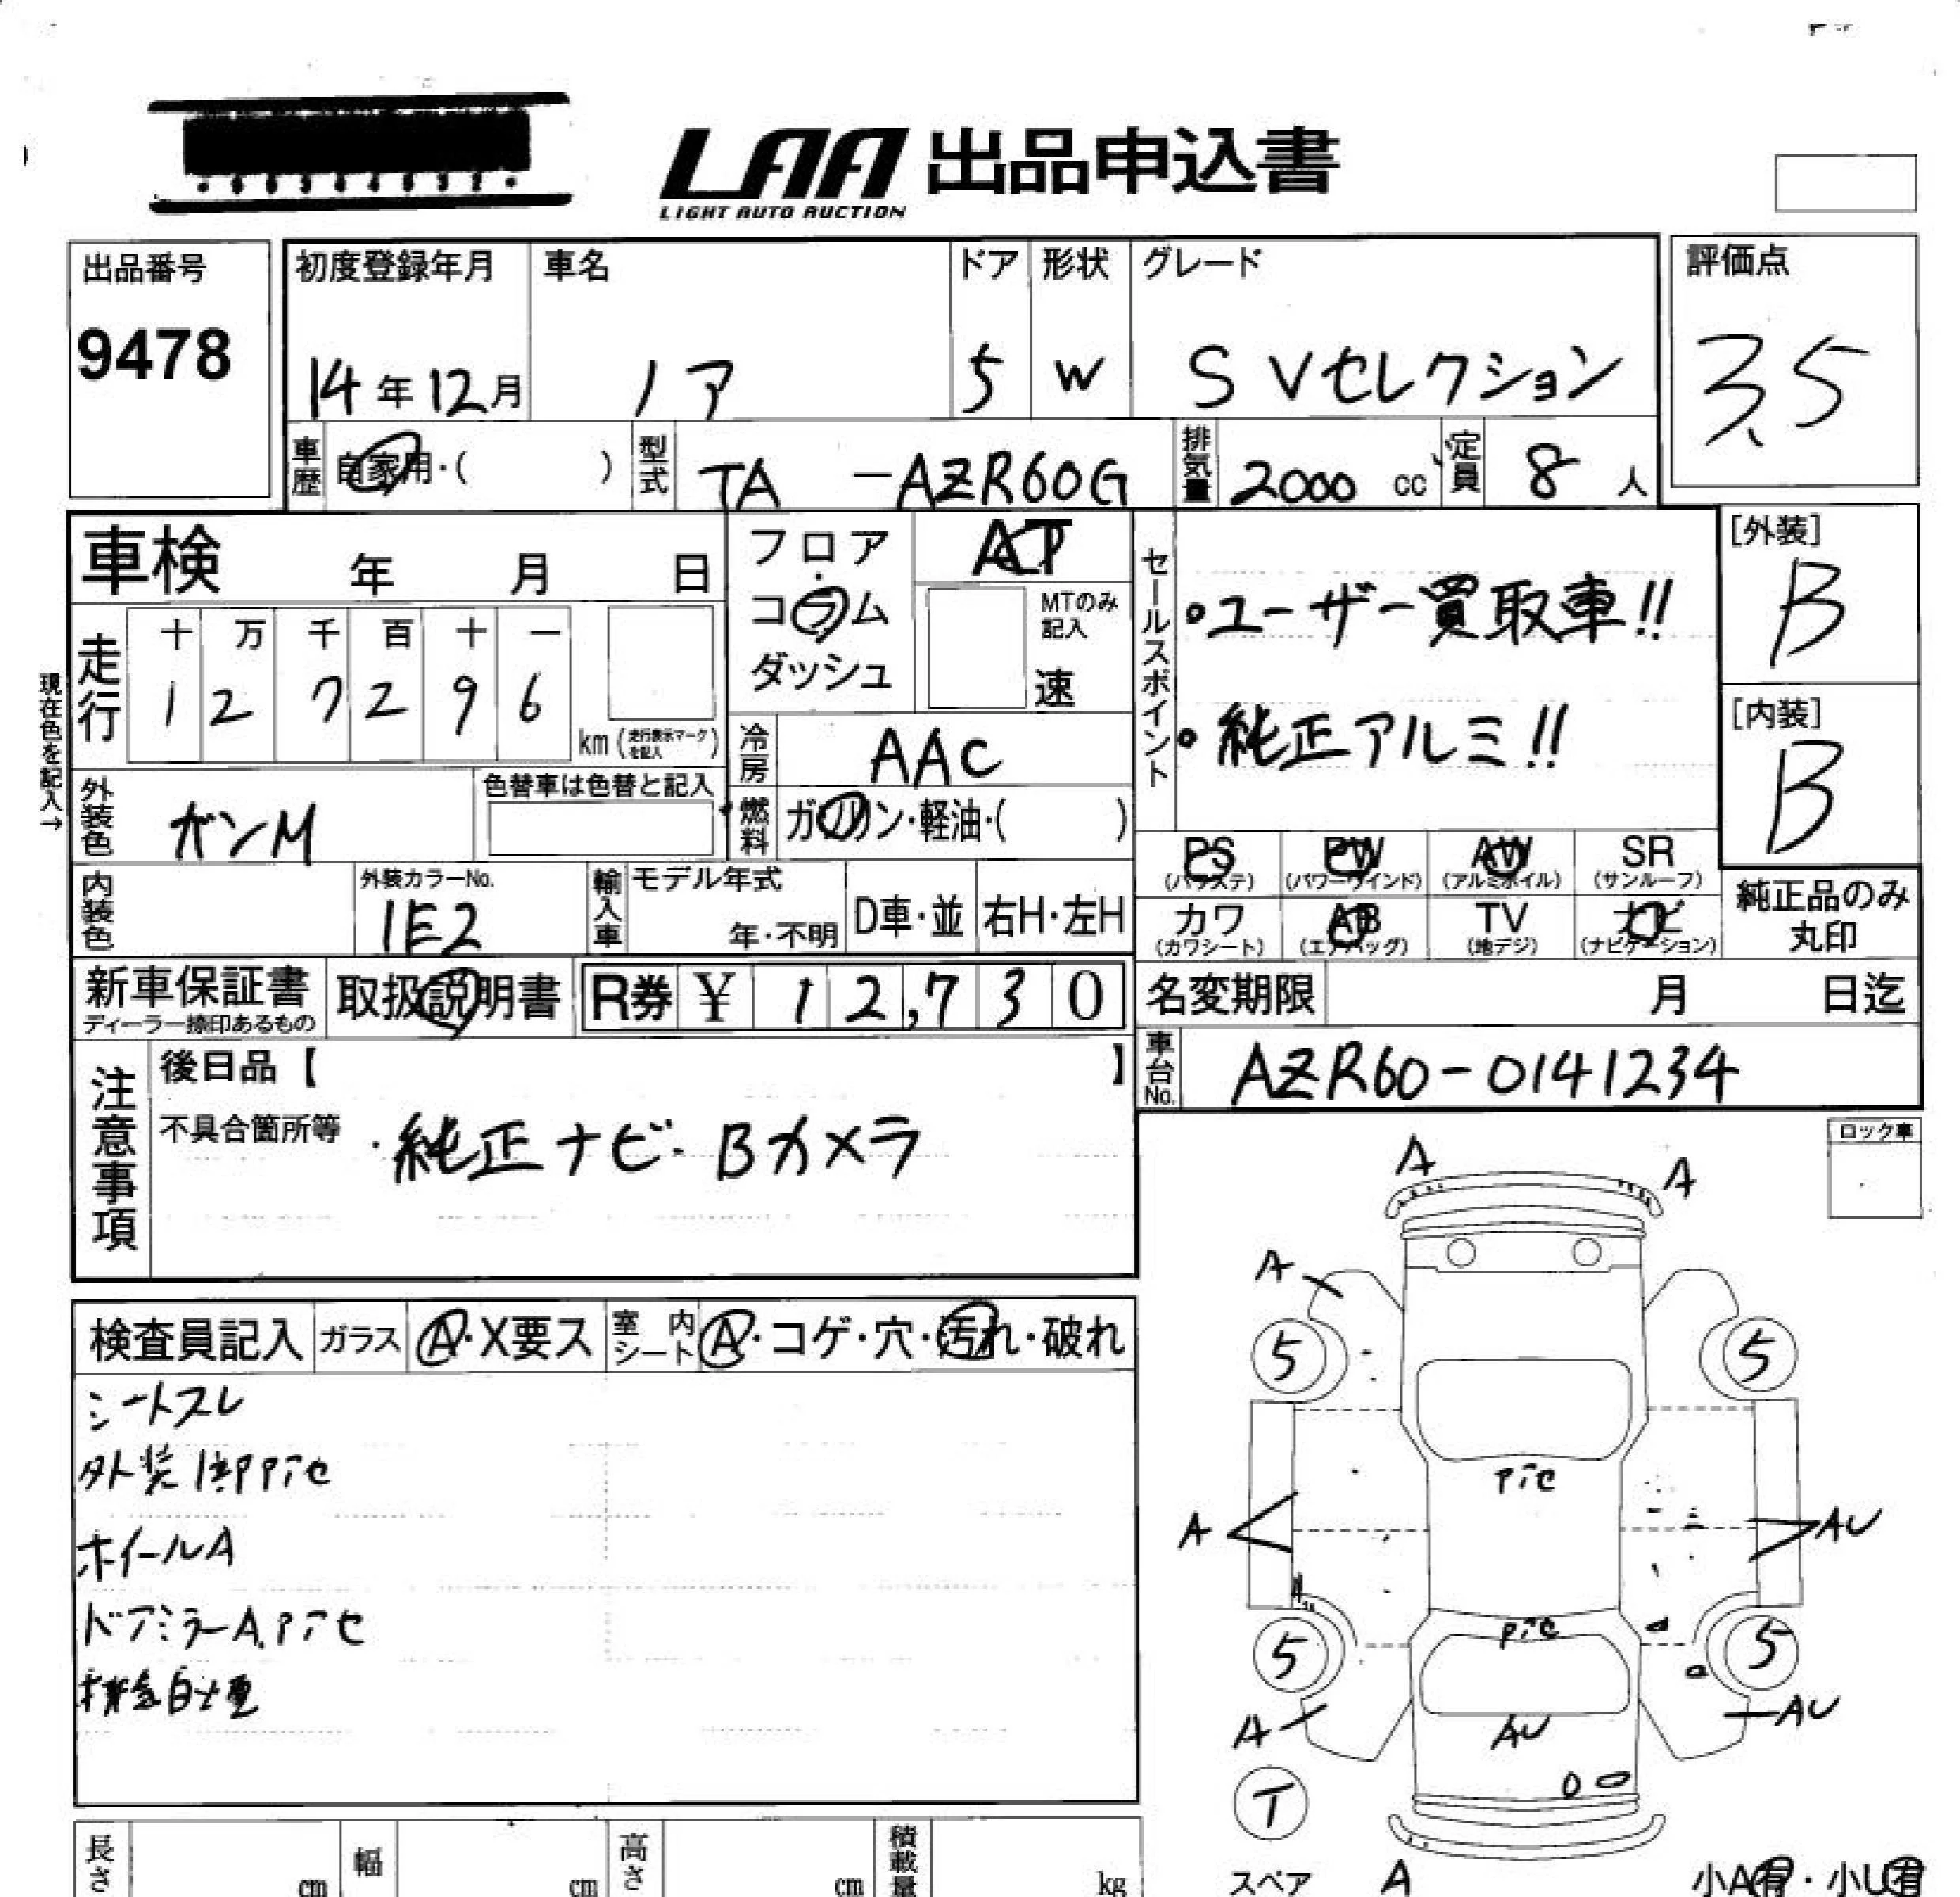 LAA 出品申込書
LIGHT AUTO AUCTION
出品番号
9478
初度登録年月
14年12月
車名
ノア
ドア
5
形状
W
グレード
S Vセレクション
評価点
3.5
車歴
自家用・( )
型式
TA -AZR60G
排気量
2000 cc
定員
8 人
車検 年 月 日
フロア
コラム
ダッシュ
AT
MTのみ
記入
速
セールスポイント
・ユーザー買取車!!
・純正アルミ!!
[外装]
B
[内装]
B
現在色を記入→
走行
十 万 千 百 十 一
1 2 7 2 9 6
km (走行表示マークを記入)
冷房
AAC
外装色
ガンM
色替車は色替と記入
燃料
ガソリン・軽油・( )
PS
(パワステ)
PW
(パワーウインド)
AW
(アルミホイル)
SR
(サンルーフ)
カワ
(カワシート)
AB
(エアバッグ)
TV
(地デジ)
ナビ
(ナビゲーション)
純正品のみ
丸印
内装色
外装カラーNo.
1E2
輸入車
モデル年式
年・不明
D車・並
右H・左H
新車保証書
ディーラー捺印あるもの
取扱説明書
R券 ¥ 12,730
名変期限 月 日迄
車台No.
AZR60-0141234
注意事項
後日品【 】
不具合箇所等
・純正ナビ・Bカメラ
ロック車
検査員記入
ガラス
A・X要ス
室内
シート
A・コゲ・穴・汚れ・破れ
シートスレ
外装1部Pﾃｾ
ホイールA
ドアミラーA,Pﾃｾ
A
A
A
5
5
Pﾃｾ
A
AU
Pﾃｾ
5
5
A
AU
AU
T
スペア
A
小A有・小U有
長さ
cm
幅
cm
高さ
cm
積載量
kg